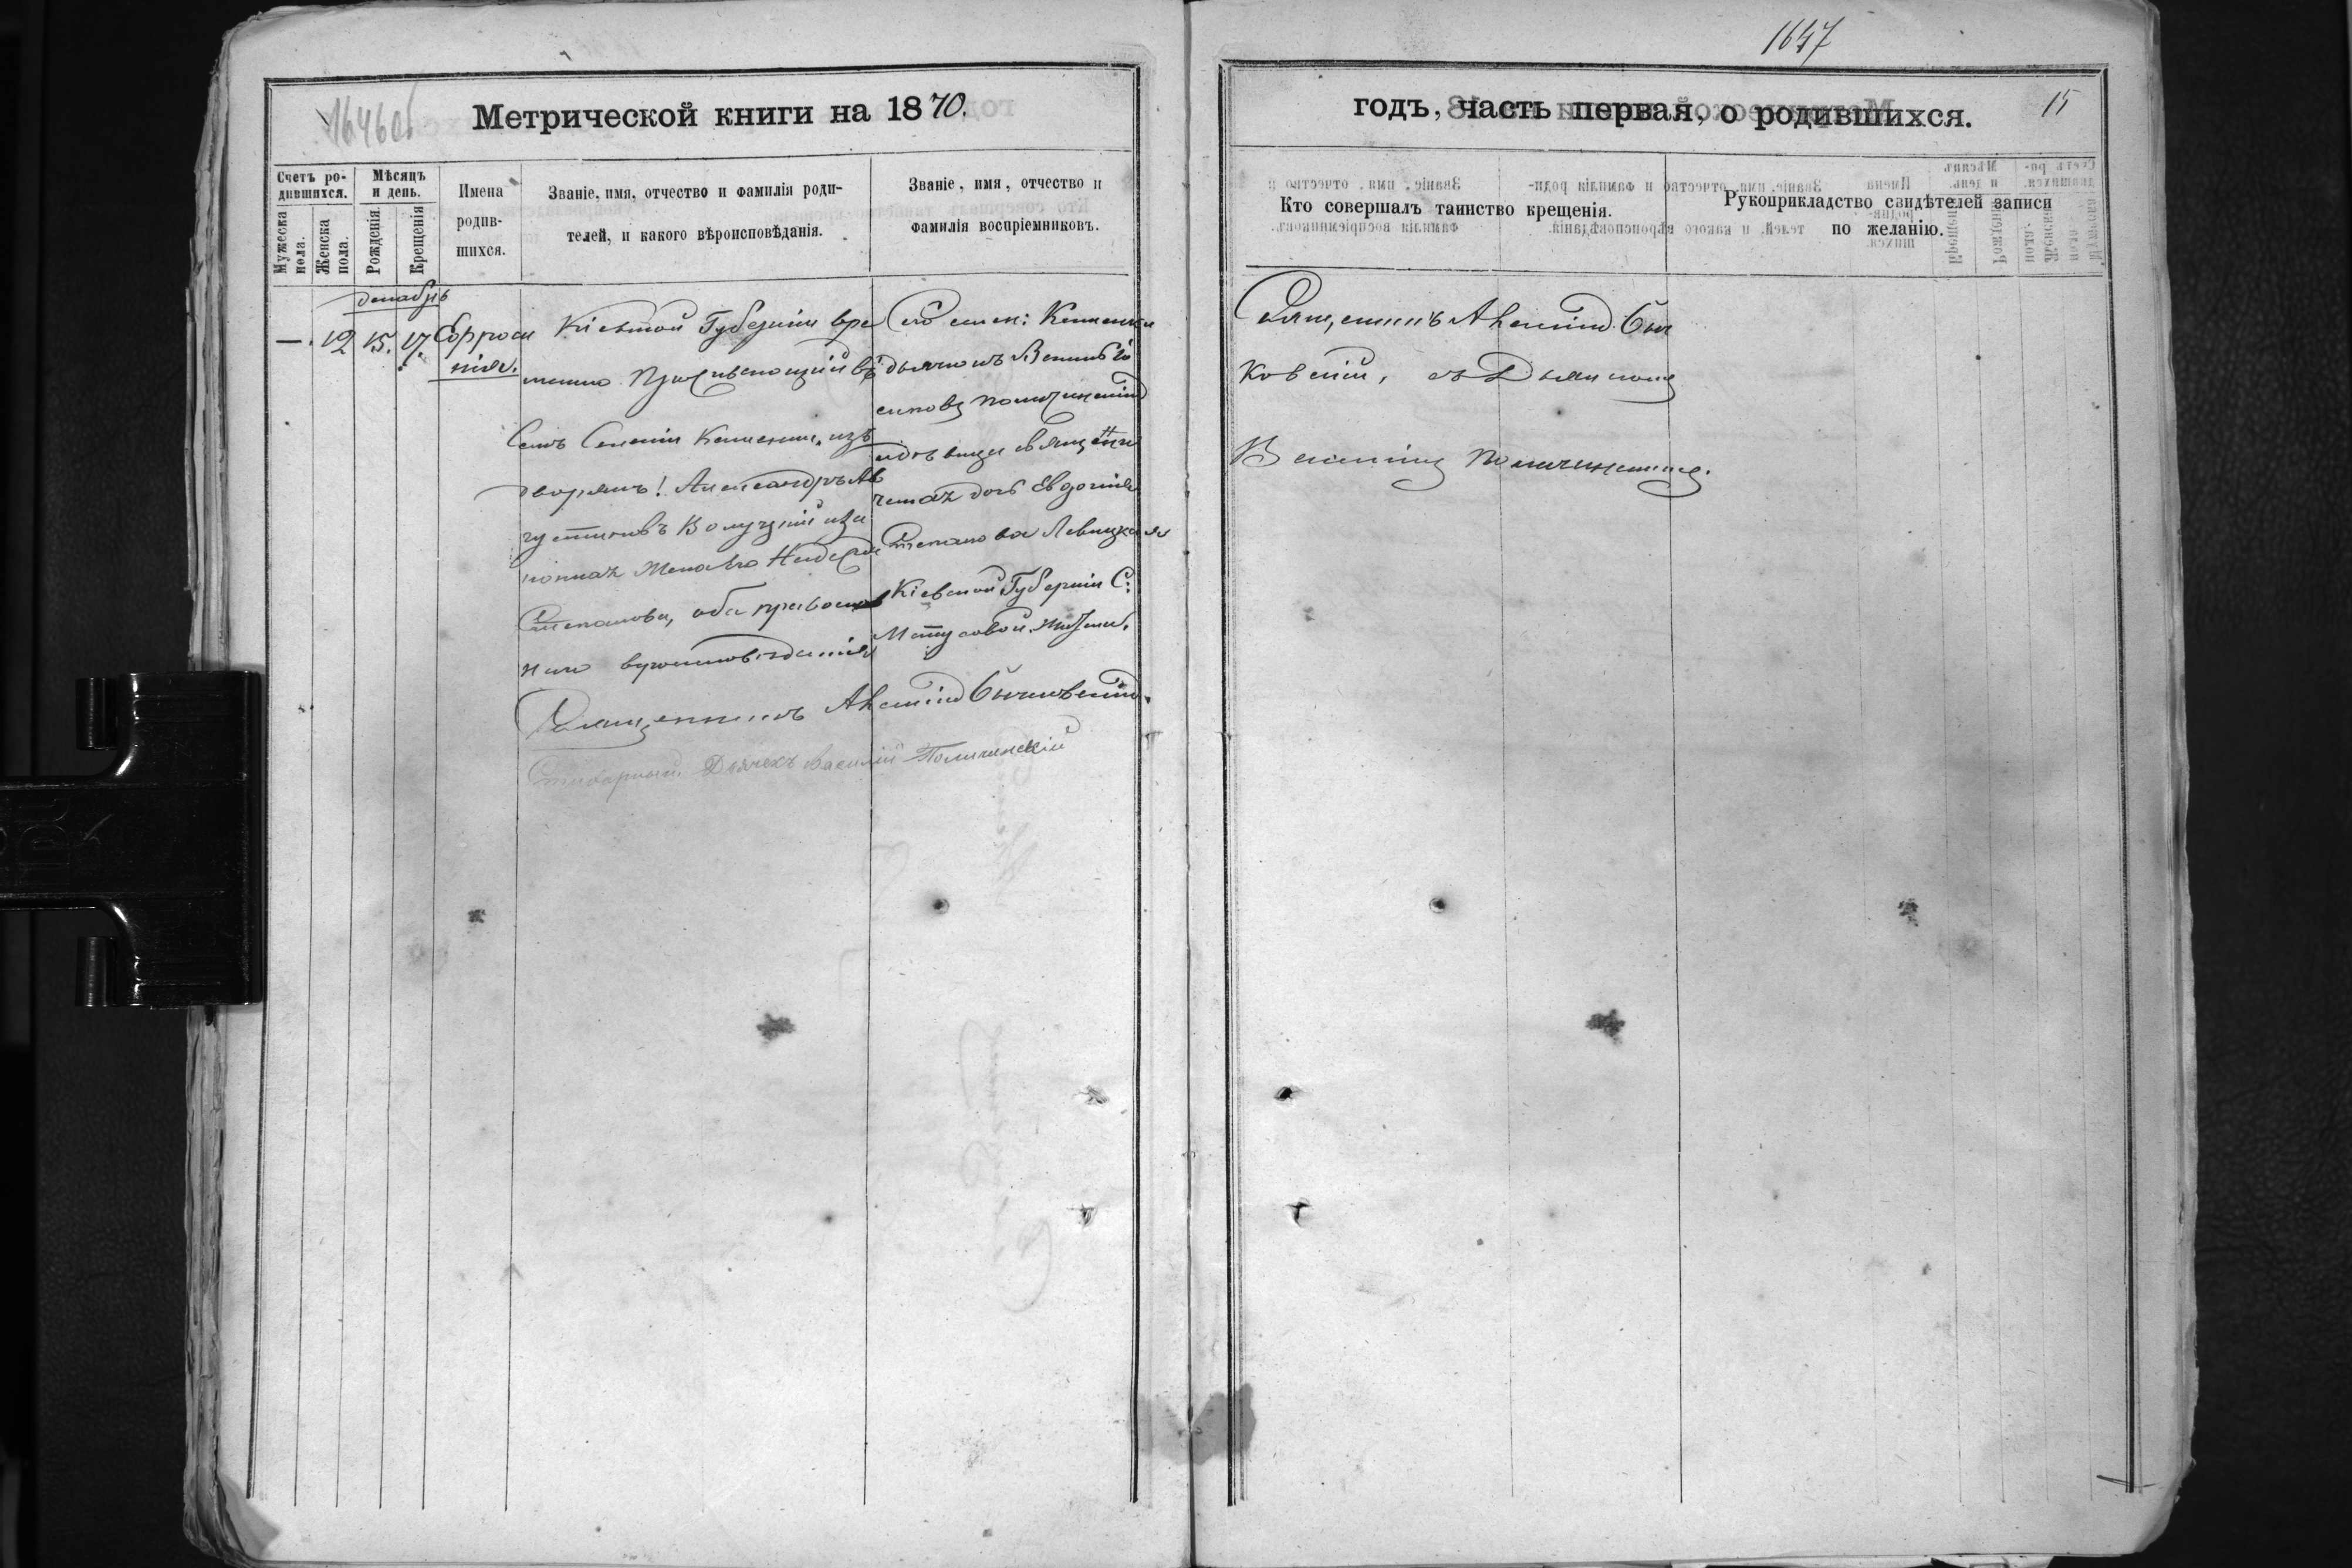 1646об
Метрической книги на 1870.
Счетъ ро-
дившихся.
Мужеска
пола.
Женска
пола.
Мѣсяцъ
и день.
Рожденія.
Крещенія
Имена
родив-
шихся.
Званіе, имя, отчество и фамилія роди-
телей, и какого вѣроисповѣданія.
Званіе, имя, отчество и
фамилія воспріемниковъ.
декабрь
— 12 15. 17. Ефроси
нія.
Кіевской Губерніи вре
менно Проживающій въ
Семъ Селеніи Каменки, изъ
дворянъ! Александръ Ав
густиновъ
жена его Надежда
Степанова, оба православ
наго вероисповеданія
Сего селен: Каменки
дьячокъ Василій
синовъ Помичинскій
священи
дочь Евдокія
Степанова Левицкая
Кіевской Губерніи С:
Матусовой.
Священникъ Афанасій Бычковскій.
Дьячекъ Василій Помичинскій
1647
годъ, часть первая, о родившихся.
15
Кто совершалъ таинство крещенія.
Рукоприкладство свидѣтелей записи
по желанію.
Священникъ Афанасій Быч
ковскій, съ Дьячкомъ
Василіемъ Помичинскимъ.